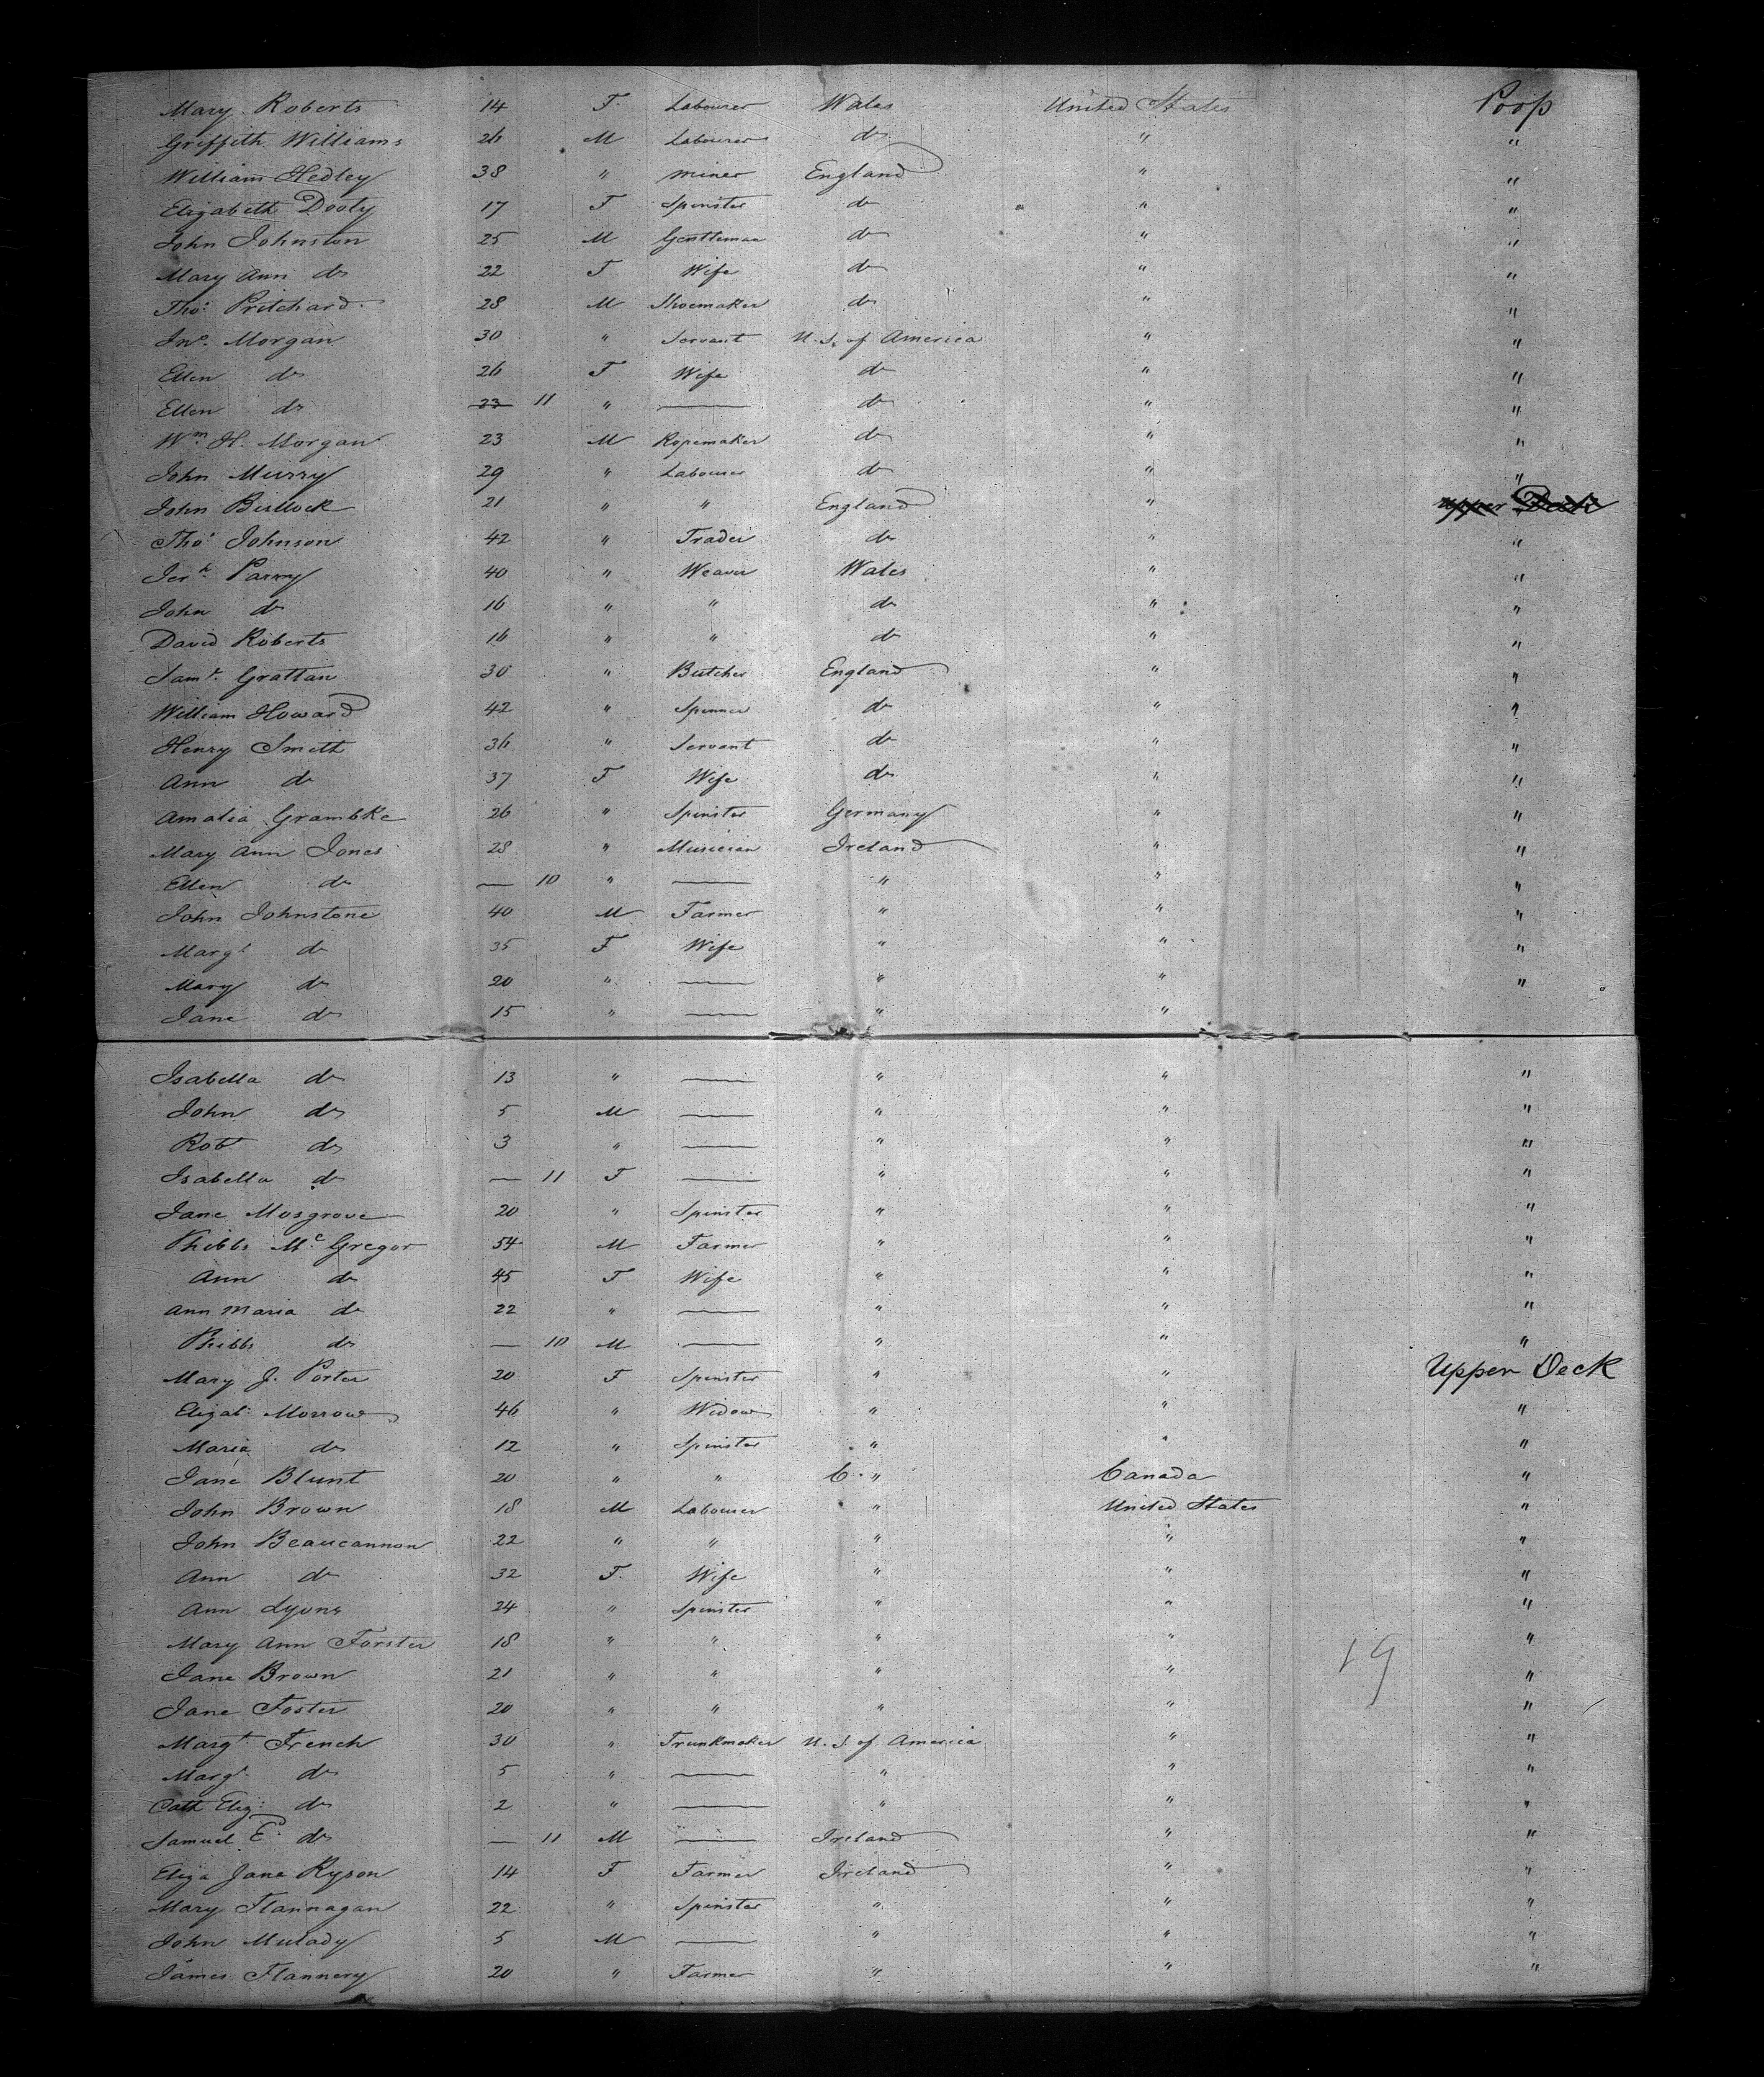 Mary Roberts 14 F. Labourer Wales United States Poop
Griffith Williams 26 M Labourer do "  "
William Hedley 38 " miner England " "
Elizabeth Dooty 17 F Spinster do " "
John Johnston 25 M Gentleman do " "
Mary Ann do 22 F Wife do " "
Thos. Pritchard 28 M Shoemaker do " "
Jno. Morgan 30 " Servant U.S. of America " "
Ellen do 26 F Wife do " "
Ellen do 23 11 " — do " "
Wm. H. Morgan 23 M Ropemaker do " "
John Murry 29 " Labourer do " "
John Bullock 21 " " England " Upper Deck
Thos Johnson 42 " Trader do " "
Jerh. Parry 40 " Weaver Wales " "
John do 16 " " do " "
David Roberts 16 " " do " "
Saml. Grattan 30 " Butcher England " "
William Howard 42 " Spinner do " "
Henry Smith 36 " Servant do " "
Ann do 37 F Wife do " "
Amalia Grambke 26 " Spinster Germany " "
Mary Ann Jones 28 " Musician Ireland " "
Ellen do — 10 " — " " "
John Johnstone 40 M Farmer " " "
Margt do 35 F Wife " " "
Mary do 20 " — " " "
Jane do 15 " — " "
Isabella do 13 " — " " "
John do 5 M — " " "
Robt do 3 " — " " "
Isabella do — 11 F — " " "
Jane Mosgrove 20 " Spinster " " "
Phibbs Mc Gregor 54 M Farmer " " "
Ann do 45 F Wife " " "
Ann Maria do 22 " — " " "
Phibbs do — 10 M — " " "
Mary J. Porter 20 F Spinster " " Upper Deck
Elizab: Morrow 46 " Widow " " "
Maria do 12 " Spinster " " "
Jane Blunt 20 " " C. " Canada "
John Brown 18 M Labourer " United States "
John Beaucannon 22 " " " " "
Ann do 32 F. Wife " " "
Ann Lyons 24 " Spinster " " "
Mary Ann Forster 18 " " " " 19 "
Jane Brown 21 " " " " "
Jane Foster 20 " " " " "
Margt French 30 " Trunkmaker U.S. of America " "
Margt do 5 " — " " "
Cath Eliz: do 2 " — " " "
Samuel E. do — 11 M — Ireland " "
Eliza Jane Ryson 14 F Farmer Ireland " "
Mary Flannagan 22 " Spinster " " "
John Mulady 5 M — " " "
James Flannery 20 " Farmer " " "